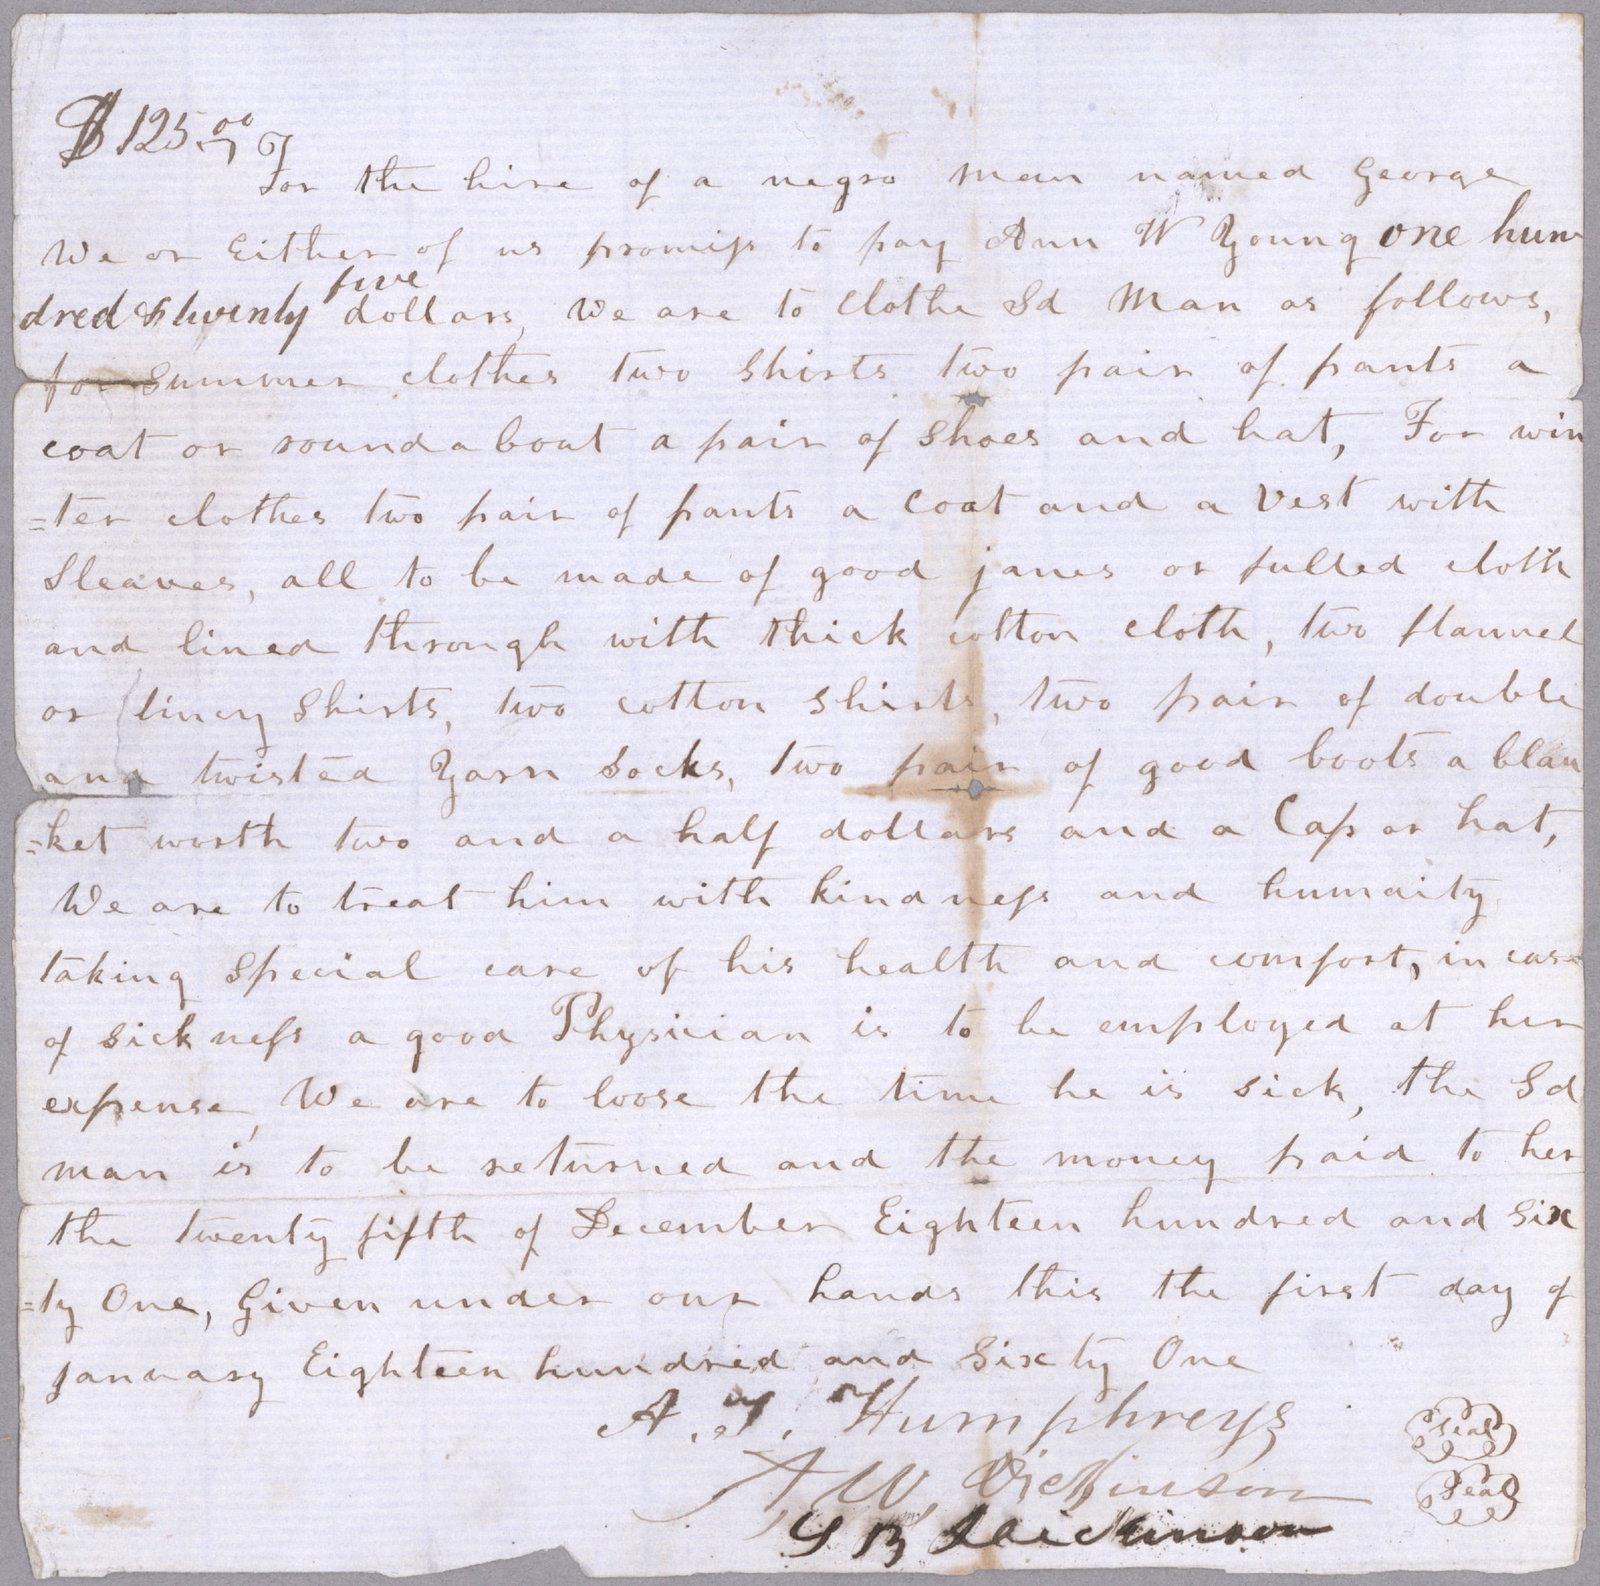 $125.00
For the hire of a negro man named George
We or Either of us promiss to pay Ann W Young one hun
five
dred & twenty dollars, We are to Clothe Sd Man as follows,
for summer clothes two Shirts two pair of pants a
coat or roundabout a pair of Shoes and hat, For win
=ter clothes two pair of pants a Coat and a Vest with
Sleaves, all to be made of good janes or fulled cloth
and lined through with thick cotton cloth, two flannel
or lincy Shirts, two cotton Shirts, two pair of double
and twisted Yarn Socks, two pair of good boots a blan
=ket worth two and a half dollars and a Cap or hat,
We are to treat him with kindness and humaity
taking Special care of his health and comfort, in case
of sickness a good Physician is to be employed at her
expense, We are to loose the time he is sick, the Sd
man is to be returned and the money paid to her
the twenty fifth of December Eighteen hundred and Six
=ty One, Given under our hands this the first day of
January Eighteen hundred and Sixty One
A. T. Humphreys Seal
A W. Dickinson Seal
B Dickinson